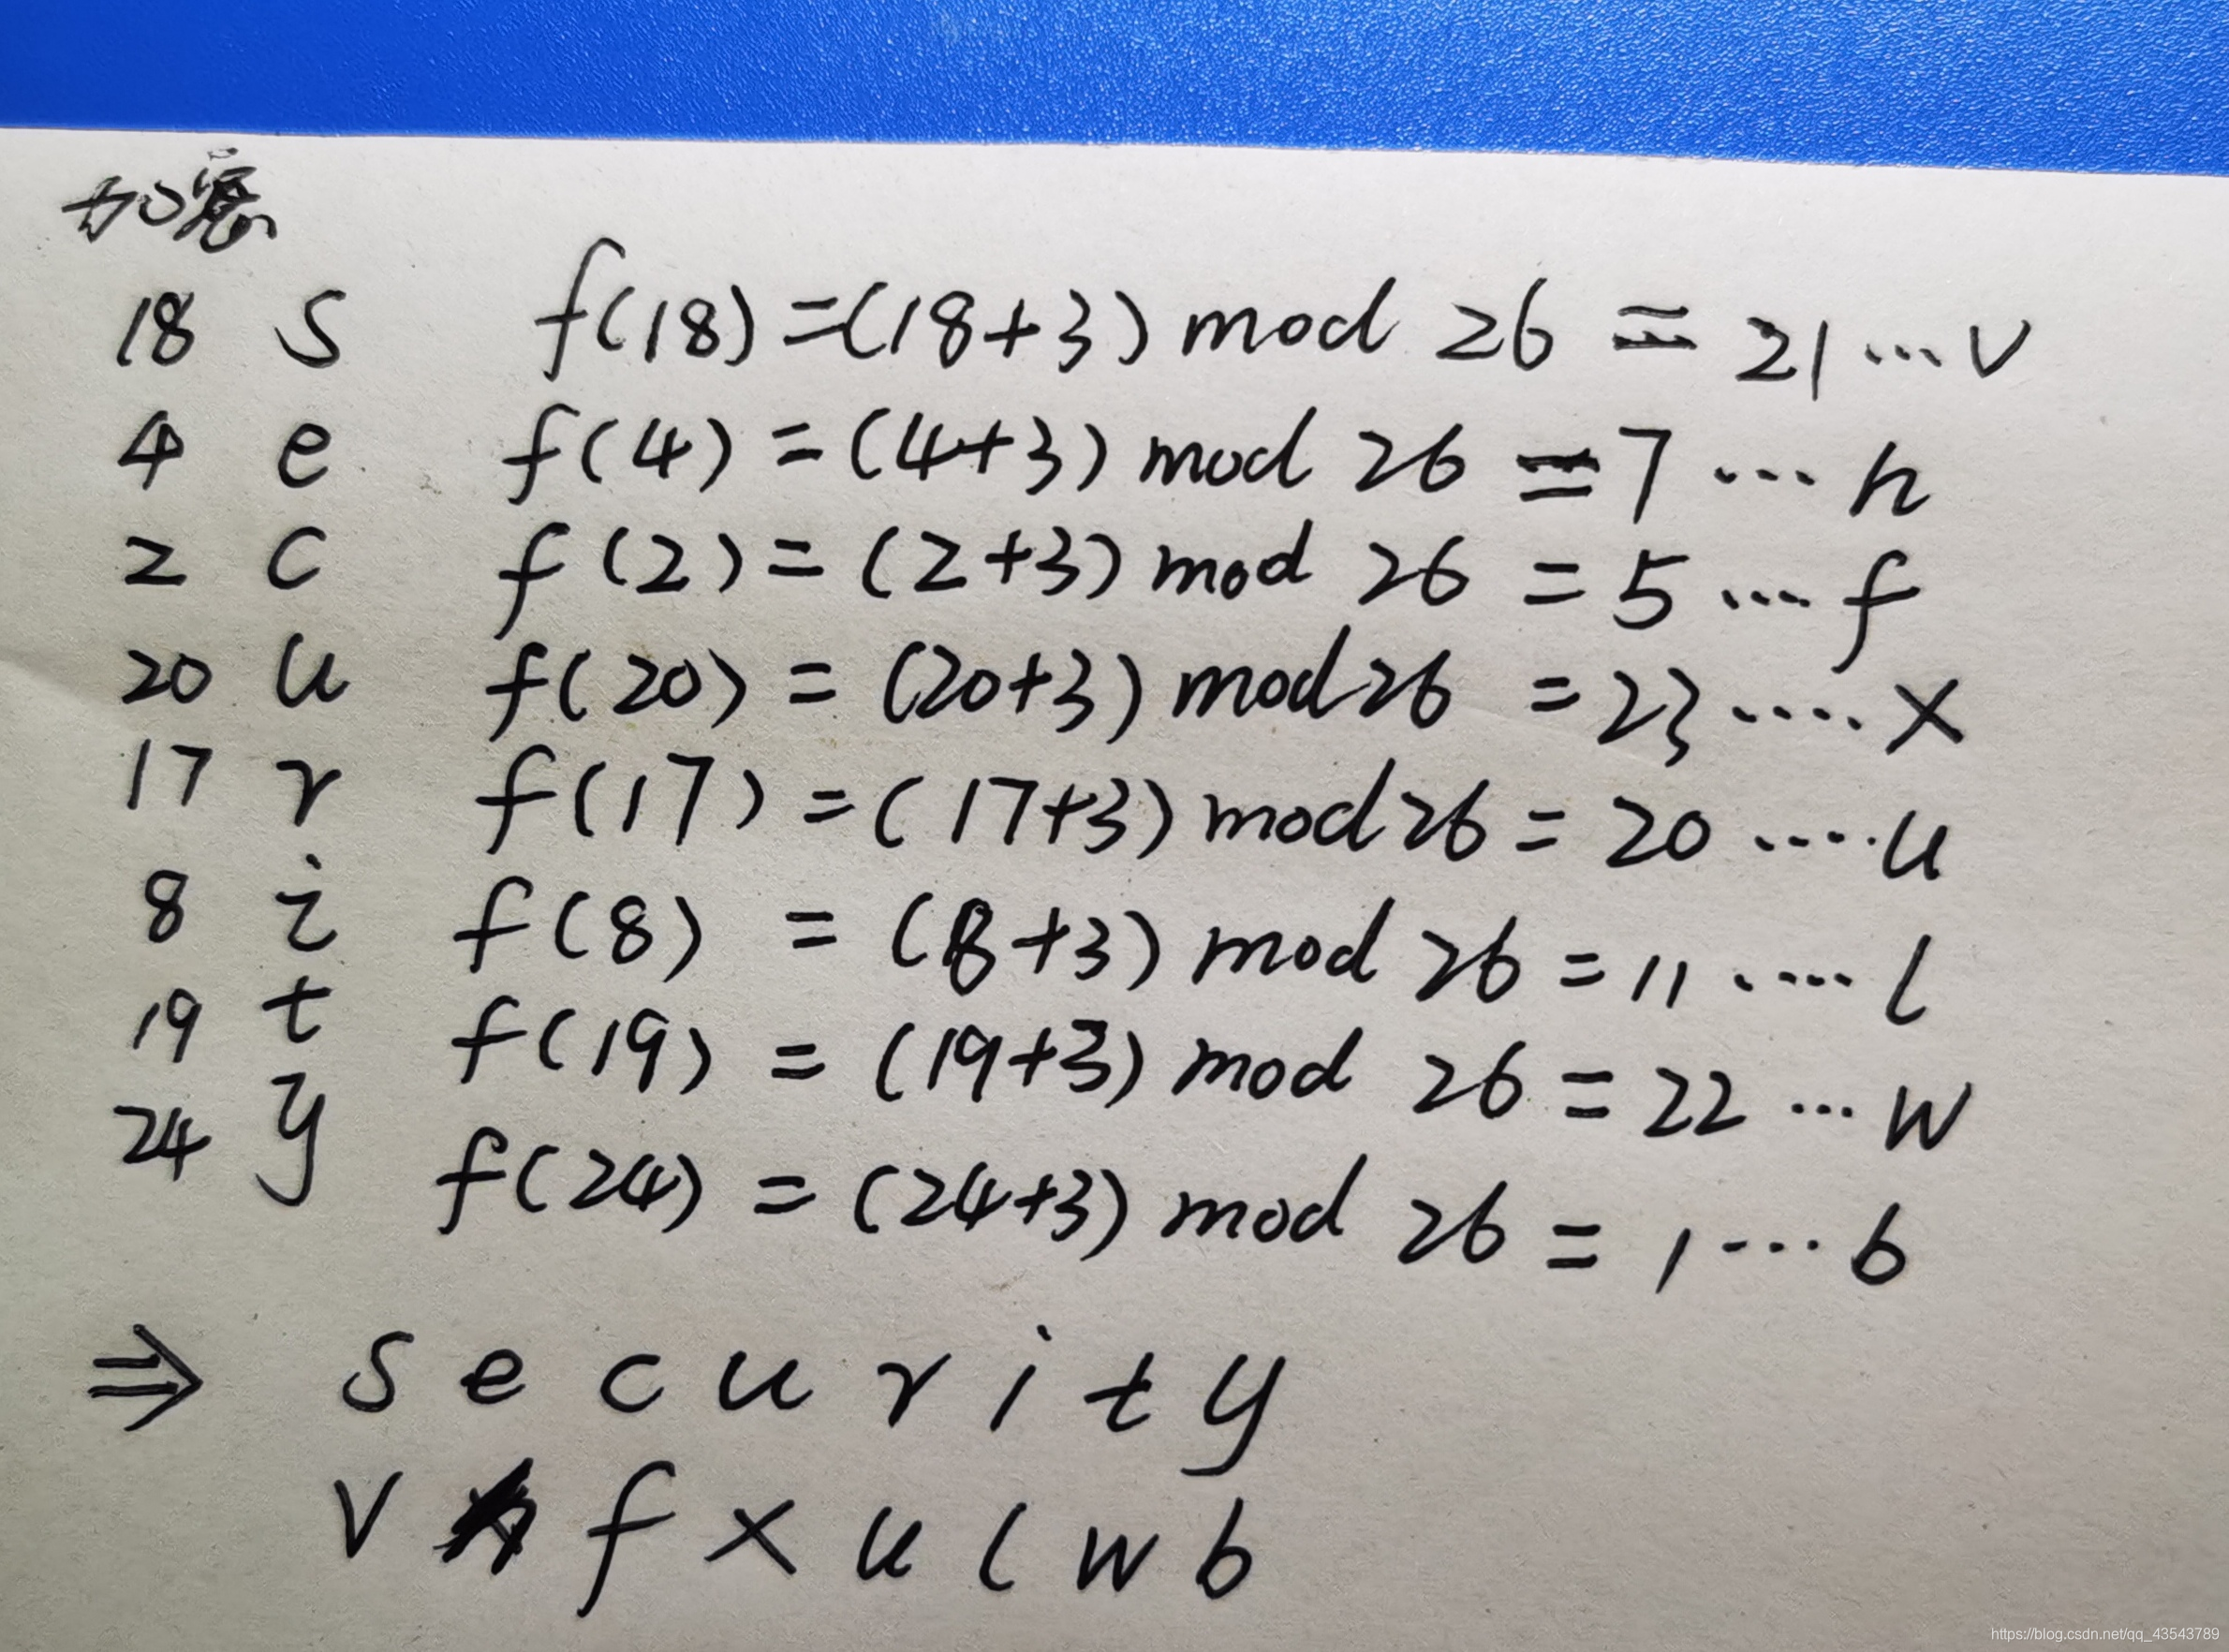 加密
18 s f(18)=(18+3) mod 26 = 21 ... v
4 e f(4) = (4+3) mod 26 = 7 ... h
2 c f(2) = (2+3) mod 26 = 5 ... f
20 u f(20) = (20+3) mod 26 = 23 .... x
17 r f(17) = (17+3) mod 26 = 20 .... u
8 i f(8) = (8+3) mod 26 = 11 .... l
19 t f(19) = (19+3) mod 26 = 22 ... w
24 y f(24) = (24+3) mod 26 = 1 ... b
⇒ s e c u r i t y
v h f x u l w b
https://blog.csdn.net/qq_43543789